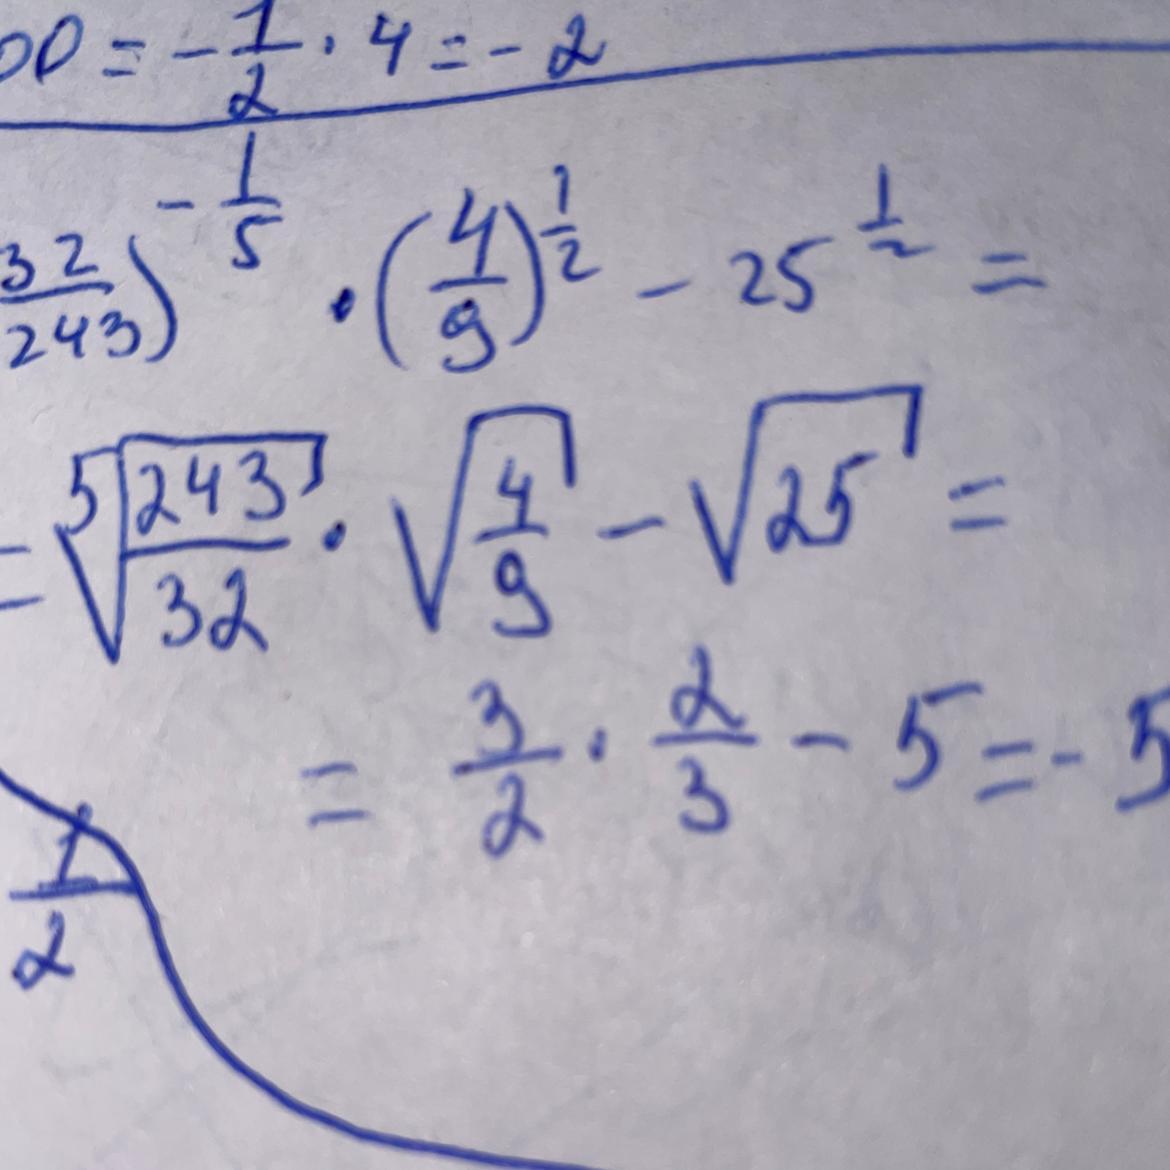 00 = - 1/2 · 4 = - 2
32/243)^(-1/5) · (4/9)^(1/2) - 25^(1/2) =
= ⁵√(243/32) · √(4/9) - √25 =
= 3/2 · 2/3 - 5 = - 5
1/2